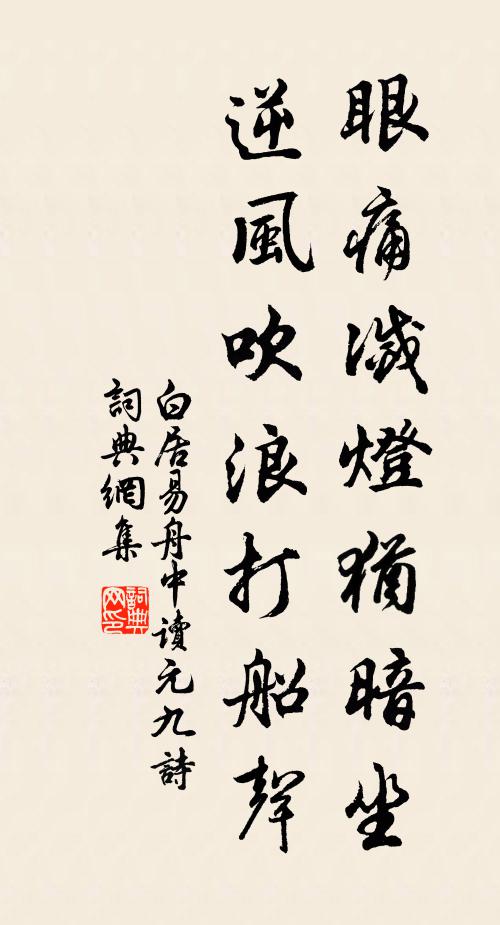 眼痛滅燈猶暗坐
逆風吹浪打船聲
白居易舟中讀元九詩
詞典網集
詞典
网印